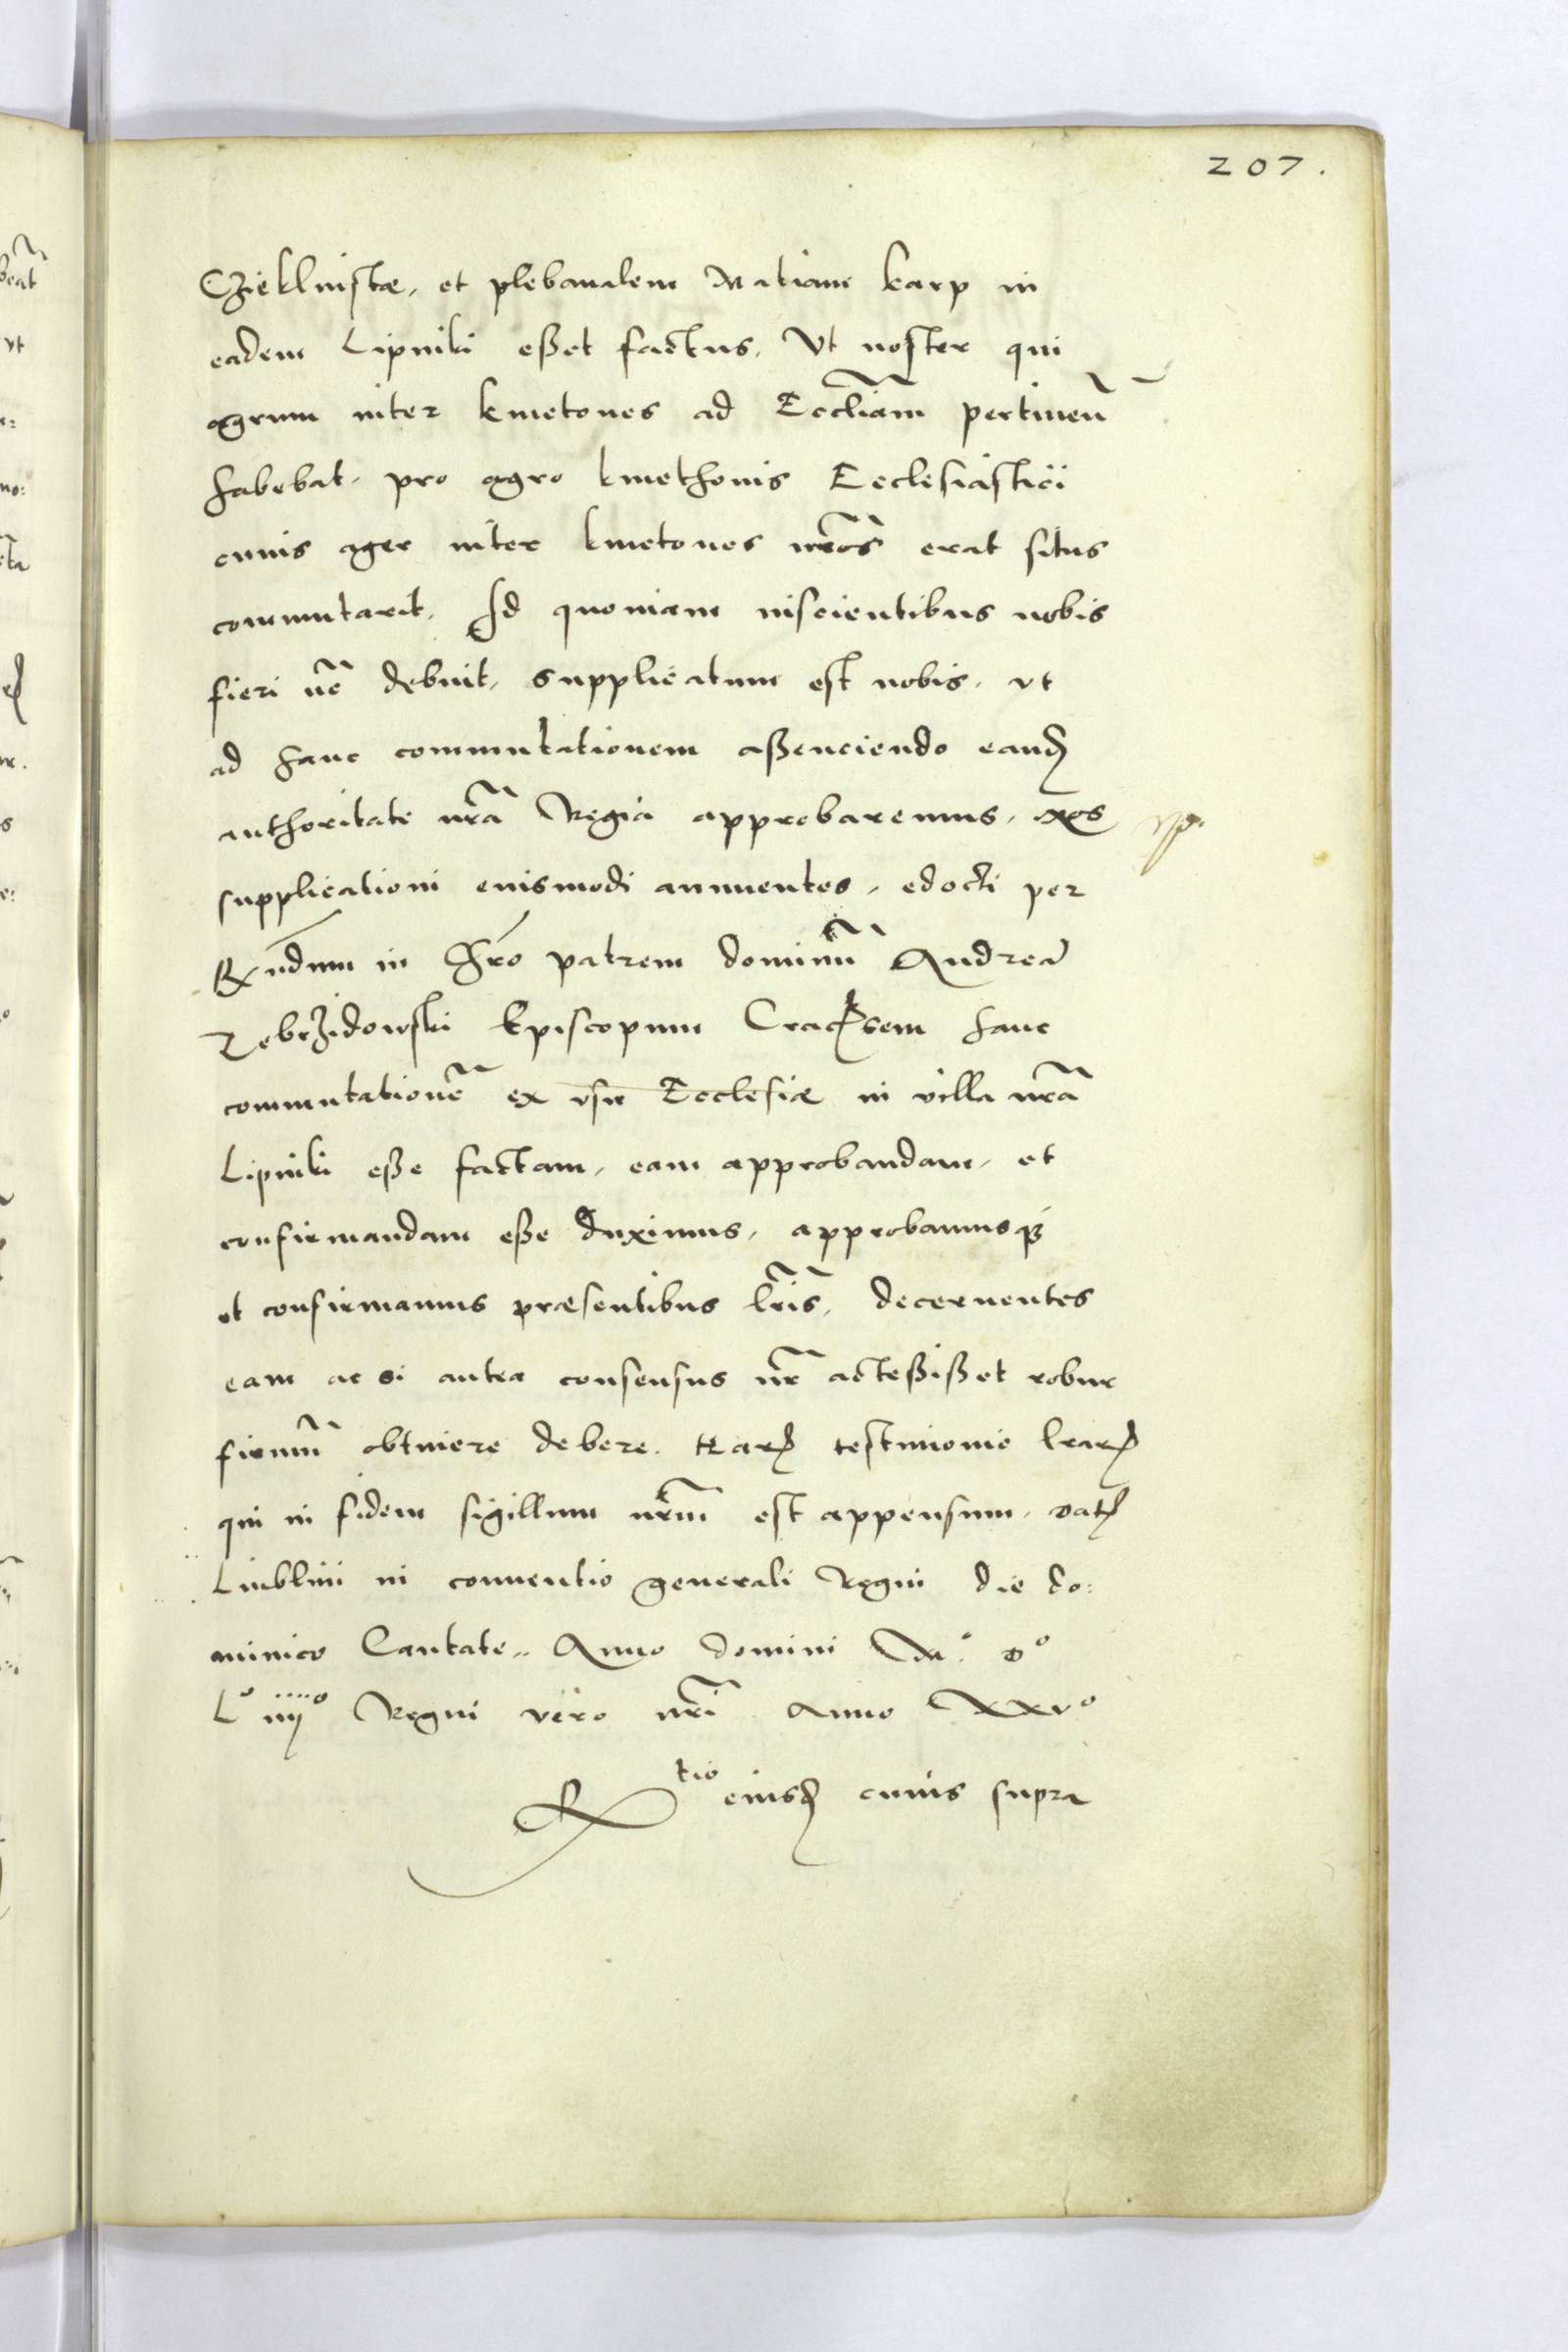 207.
Czieklinskæ, et plebanalem Matiam Karp in
eadem Lipniki eßet factus, Vt noster qui
agrum inter kmetones ad Eccłiam pertineñ
habebat, pro agro kmethonis Ecclesiastici
cuius ager inter kmetones nr̃os erat situs
commutarit. Id quoniam inscientibus nobis
fieri nõ debuit, supplicatum est nobis, vt
ad hanc commutationem aßenciendo eand
authoritate nr̃a Regia approbaremus, Nos
supplicationi euismodi annuentes, edocti per
Rx̃ndum in Chr̃o patrem dominũ Andreã
Zebrzidowski Episcopum Cracosem hanc
commutationẽ ex vsu Ecclesiæ in villa nr̃a
Lipniki eße factam, eam approbandam, et
confirmandam eße duximus, approbamusqꝫ
et confirmamus præsentibus lr̃is, decernentes
eam ac si antea consensus nr̃ acteßißet robur
firmũ obtinere debere. Harꝫ testimonio lrarꝫ
qui in fidem sigillum nr̃m est appensum. Datꝫ
Liublini in conuentio generali Regni die do:
minico Cantate,, Anno domini M.° D°
L° iiij° Regni vero nr̃i Anno XXV°
Rtio eiusd cuius supra